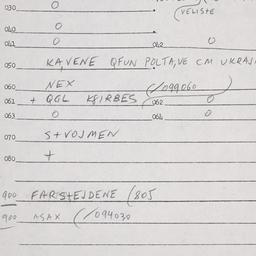 (VELISTE
030 0
040 0
041 0 042 0
050 KA,VENE QFUN POLTA,VE CM UKRAJ
060 NEX (/099060
061 + QGL K8IRBES 062 0
063 0 064 0
070 S+VOJMEN
080 +
900 FARS+EJDENE (805
900 ASAX (/094030